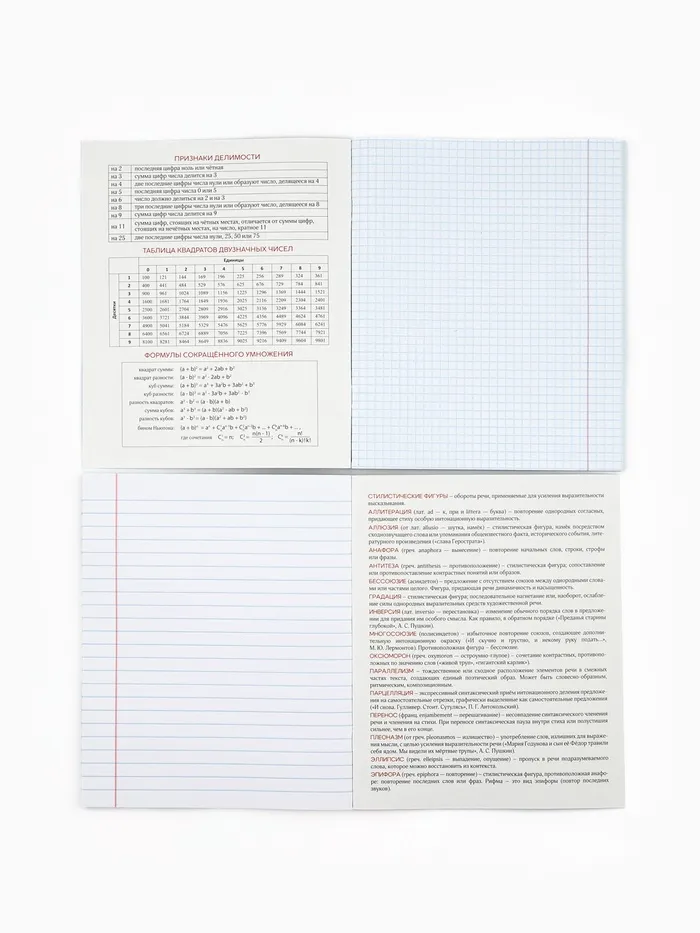 ПРИЗНАКИ ДЕЛИМОСТИ
на 2 последняя цифра ноль или чётная
на 3 сумма цифр числа делится на 3
на 4 две последние цифры числа нули или образуют число, делящееся на 4
на 5 последняя цифра числа 0 или 5
на 6 число должно делиться на 2 и на 3
на 8 три последние цифры числа нули или образуют число, делящееся на 8
на 9 сумма цифр числа делится на 9
на 11 сумма цифр, стоящих на чётных местах, отличается от суммы цифр,
стоящих на нечётных местах, на число, кратное 11
на 25 две последние цифры числа нули, 25, 50 или 75
ТАБЛИЦА КВАДРАТОВ ДВУЗНАЧНЫХ ЧИСЕЛ
Единицы
0 1 2 3 4 5 6 7 8 9
Десятки
1 100 121 144 169 196 225 256 289 324 361
2 400 441 484 529 576 625 676 729 784 841
3 900 961 1024 1089 1156 1225 1296 1369 1444 1521
4 1600 1681 1764 1849 1936 2025 2116 2209 2304 2401
5 2500 2601 2704 2809 2916 3025 3136 3249 3364 3481
6 3600 3721 3844 3969 4096 4225 4356 4489 4624 4761
7 4900 5041 5184 5329 5476 5625 5776 5929 6084 6241
8 6400 6561 6724 6889 7056 7225 7396 7569 7744 7921
9 8100 8281 8464 8649 8836 9025 9216 9409 9604 9801
ФОРМУЛЫ СОКРАЩЁННОГО УМНОЖЕНИЯ
квадрат суммы: (a + b)² = a² + 2ab + b²
квадрат разности: (a - b)² = a² - 2ab + b²
куб суммы: (a + b)³ = a³ + 3a²b + 3ab² + b³
куб разности: (a - b)³ = a³ - 3a²b + 3ab² - b³
разность квадратов: a² - b² = (a - b)(a + b)
сумма кубов: a³ + b³ = (a + b)(a² - ab + b²)
разность кубов: a³ - b³ = (a - b)(a² + ab + b²)
бином Ньютона:
где сочетания
СТИЛИСТИЧЕСКИЕ ФИГУРЫ – обороты речи, применяемые для усиления выразительности
высказывания.
АЛЛИТЕРАЦИЯ (лат. ad – к, при и littera – буква) – повторение однородных согласных,
придающее стиху особую интонационную выразительность.
АЛЛЮЗИЯ (от лат. allusio – шутка, намёк) – стилистическая фигура, намёк посредством
сходнозвучащего слова или упоминания общеизвестного факта, исторического события, лите-
ратурного произведения («слава Герострата»).
АНАФОРА (греч. anaphora – вынесение) – повторение начальных слов, строки, строфы
или фразы.
АНТИТЕЗА (греч. antithesis – противоположение) – стилистическая фигура; сопоставление
или противопоставление контрастных понятий или образов.
БЕССОЮЗИЕ (асиндетон) – предложение с отсутствием союзов между однородными слова-
ми или частями целого. Фигура, придающая речи динамичность и насыщенность.
ГРАДАЦИЯ – стилистическая фигура; последовательное нагнетание или, наоборот, ослабле-
ние силы однородных выразительных средств художественной речи.
ИНВЕРСИЯ (лат. inversio – перестановка) – изменение обычного порядка слов в предложе-
нии для придания им особого смысла. Как правило, в обратном порядке («Преданья старины
глубокой», А. С. Пушкин).
МНОГОСОЮЗИЕ (полисиндетон) – избыточное повторение союзов, создающее дополни-
тельную интонационную окраску («И скучно и грустно, и некому руку подать...»,
М. Ю. Лермонтов). Противоположная фигура – бессоюзие.
ОКСЮМОРОН (греч. oxymoron – остроумно-глупое) – сочетание контрастных, противопо-
ложных по значению слов («живой труп», «гигантский карлик»).
ПАРАЛЛЕЛИЗМ – тождественное или сходное расположение элементов речи в смежных
частях текста, создающих единый поэтический образ. Может быть словесно-образным,
ритмическим, композиционным.
ПАРЦЕЛЛЯЦИЯ – экспрессивный синтаксический приём интонационного деления предложе-
ния на самостоятельные отрезки, графически выделенные как самостоятельные предложения
(«И снова. Гулливер. Стоит. Сутулясь», П. Г. Антокольский).
ПЕРЕНОС (франц. enjambement – перешагивание) – несовпадение синтаксического членения
речи и членения на стихи. При переносе синтаксическая пауза внутри стиха или полустишия
сильнее, чем в его конце.
ПЛЕОНАЗМ (от греч. pleonasmos – излишество) – употребление слов, излишних для выраже-
ния мысли, с целью усиления выразительности речи («Мария Годунова и сын её Фёдор травили
себя ядом. Мы видели их мёртвые трупы», А. С. Пушкин).
ЭЛЛИПСИС (греч. elleipsis – выпадение, опущение) – пропуск в речи подразумеваемого
слова, которое можно восстановить из контекста.
ЭПИФОРА (греч. epiphora – повторение) – стилистическая фигура, противоположная анафо-
ре: повторение последних слов или фраз. Рифма – это вид эпифоры (повтор последних
звуков).